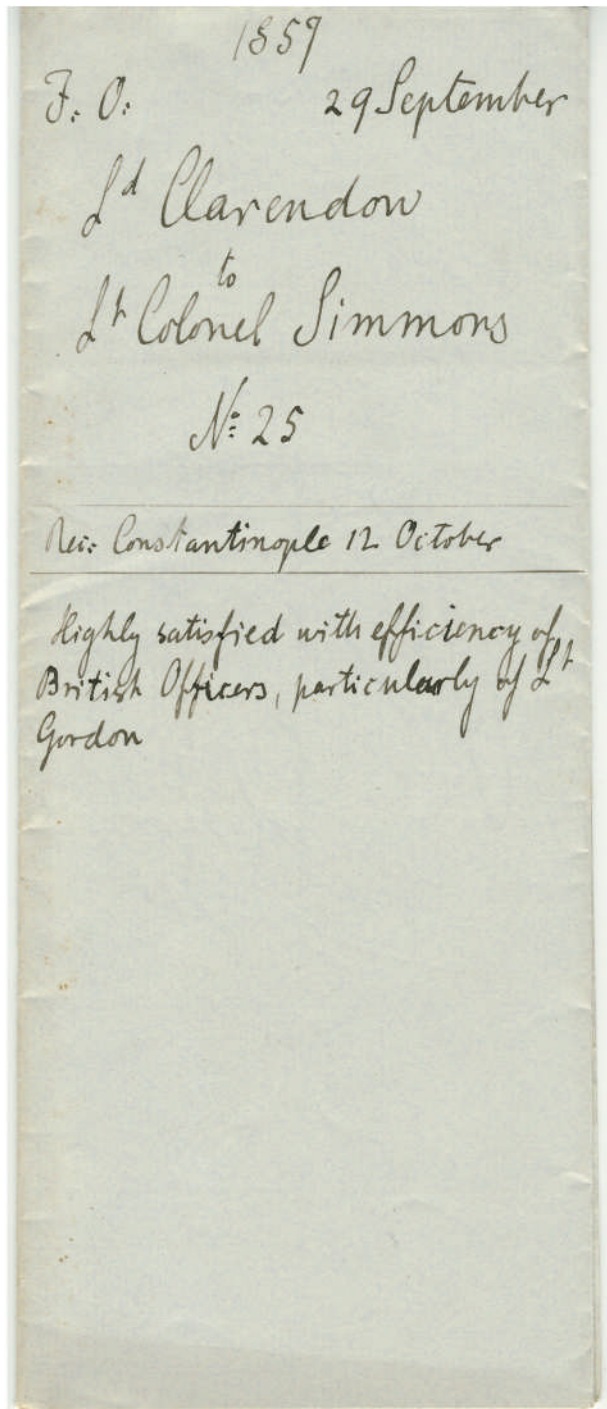 1857
F: O: 29 September
Ld Clarendon
to
Lt Colonel Simmons
No: 25
Rec: Constantinople 12 October
Highly satisfied with efficiency of
British Officers, particularly of Lt
Gordon